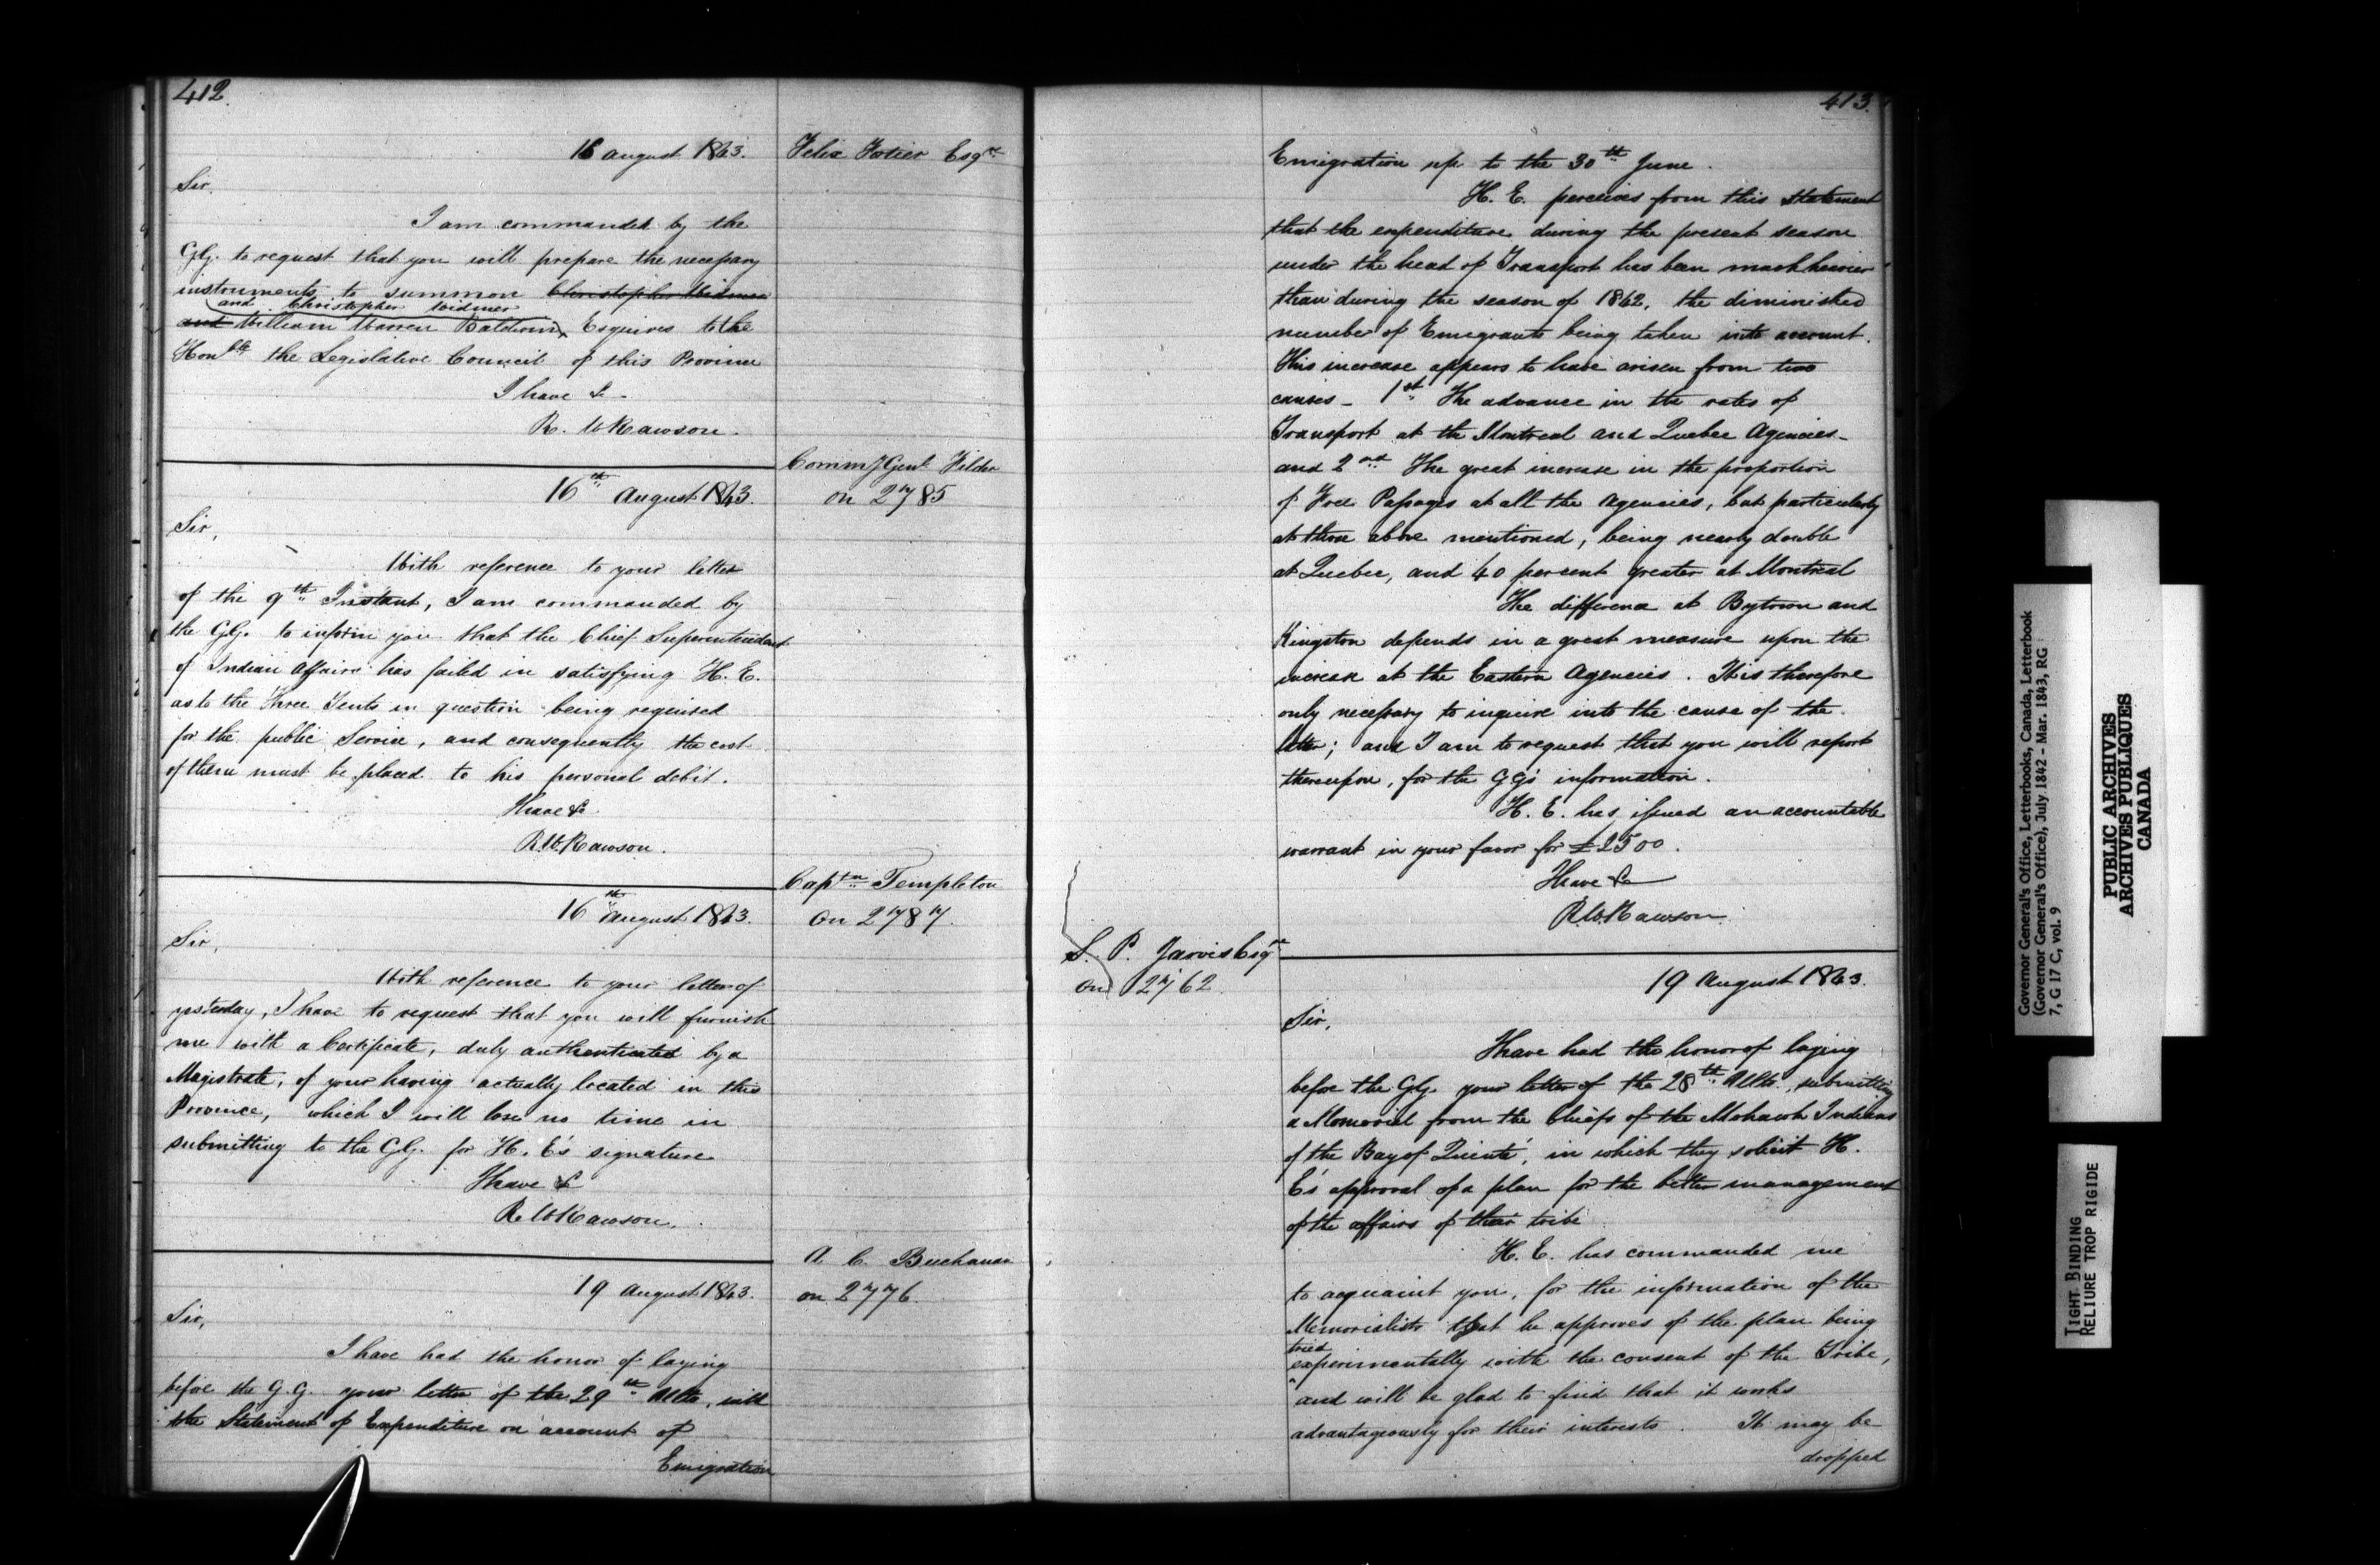 412.
16 August 1843.
Felix Fortier Esqre
Sir,
I am commanded by the
GG. to request that you will prepare the necessary
instruments to summon Christopher Widmer
and Christopher Widmer
and William Warren Baldwin Esquires to the
Honble the Legislative Council of this Province
I have &
R. W Rawson.
16th August 1843.
CommyGenl Filder
on 2785
Sir,
With reference to your letter
of the 9th Instant, I am commanded by
the GG. to inform you that the Chief Superintendant
of Indian Affairs has failed in satisfying H. E.
as to the Three Tents in question being required
for the public Service, and consequently the cost
of them must be placed to his personal debit.
I have &
R. W. Rawson.
16th August 1843.
Captn Templeton
on 2787.
Sir,
With reference to your letter of
yesterday, I have to request that you will furnish
me with a Certificate, duly authenticated by a
Magistrate, of your having actually located in this
Province, which I will lose no time in
submitting to the GG. for H. E's signature
I have &
R. W Rawson.
19 August 1843.
A. C. Buchanan
on 2776.
Sir,
I have had the honor of laying
before the G.G. your letter of the 29th Ulto, with
the Statement of Expenditure on account of
Emigration
413.
Emigration up to the 30th June.
H. E. perceives from this Statement
that the expenditure during the present season
under the head of Transport has been much heavier
than during the season of 1842, the diminished
number of Emigrants being taken into account.
This increase appears to have arisen from two
causes - 1st The advance in the rates of
Transport at the Montreal and Quebec Agencies -
and 2nd The great increase in the proportion
of Free Passages at all the Agencies, but particularly
at those above mentioned, being nearly double
at Quebec, and 40 per cent greater at Montreal
The difference at Bytown and
Kingston depends in a great measure upon the
increase at the Eastern Agencies. It is therefore
only necessary to inquire into the cause of the
latter; and I am to request that you will report
thereupon, for the GG's information.
H. E. has issued an accountable
warrant in your favor for £2500.
I have &
R. W. Rawson
S. P. Jarvis Esqre
on 2762
19 August 1843.
Sir,
I have had the honor of laying
before the GG. your letter of the 28th Ulto., submitting
a Memorial from the Chiefs of the Mohawk Indians
of the Bay of Quinté, in which they solicit H.
E's approval of a plan for the better management
of the affairs of their tribe
H. E. has commanded me
to acquaint you, for the information of the
Memorialists that he approves of the plan being
tried
experimentally with the consent of the Tribe,
and will be glad to find that it works
advantageously for their interests. It may be
dropped
Governor General's Office, Letterbooks, Canada, Letterbook
(Governor General's Office), July 1842 - Mar. 1843, RG
7, G 17 C, vol. 9
PUBLIC ARCHIVES
ARCHIVES PUBLIQUES
CANADA
TIGHT BINDING
RELIURE TROP RIGIDE